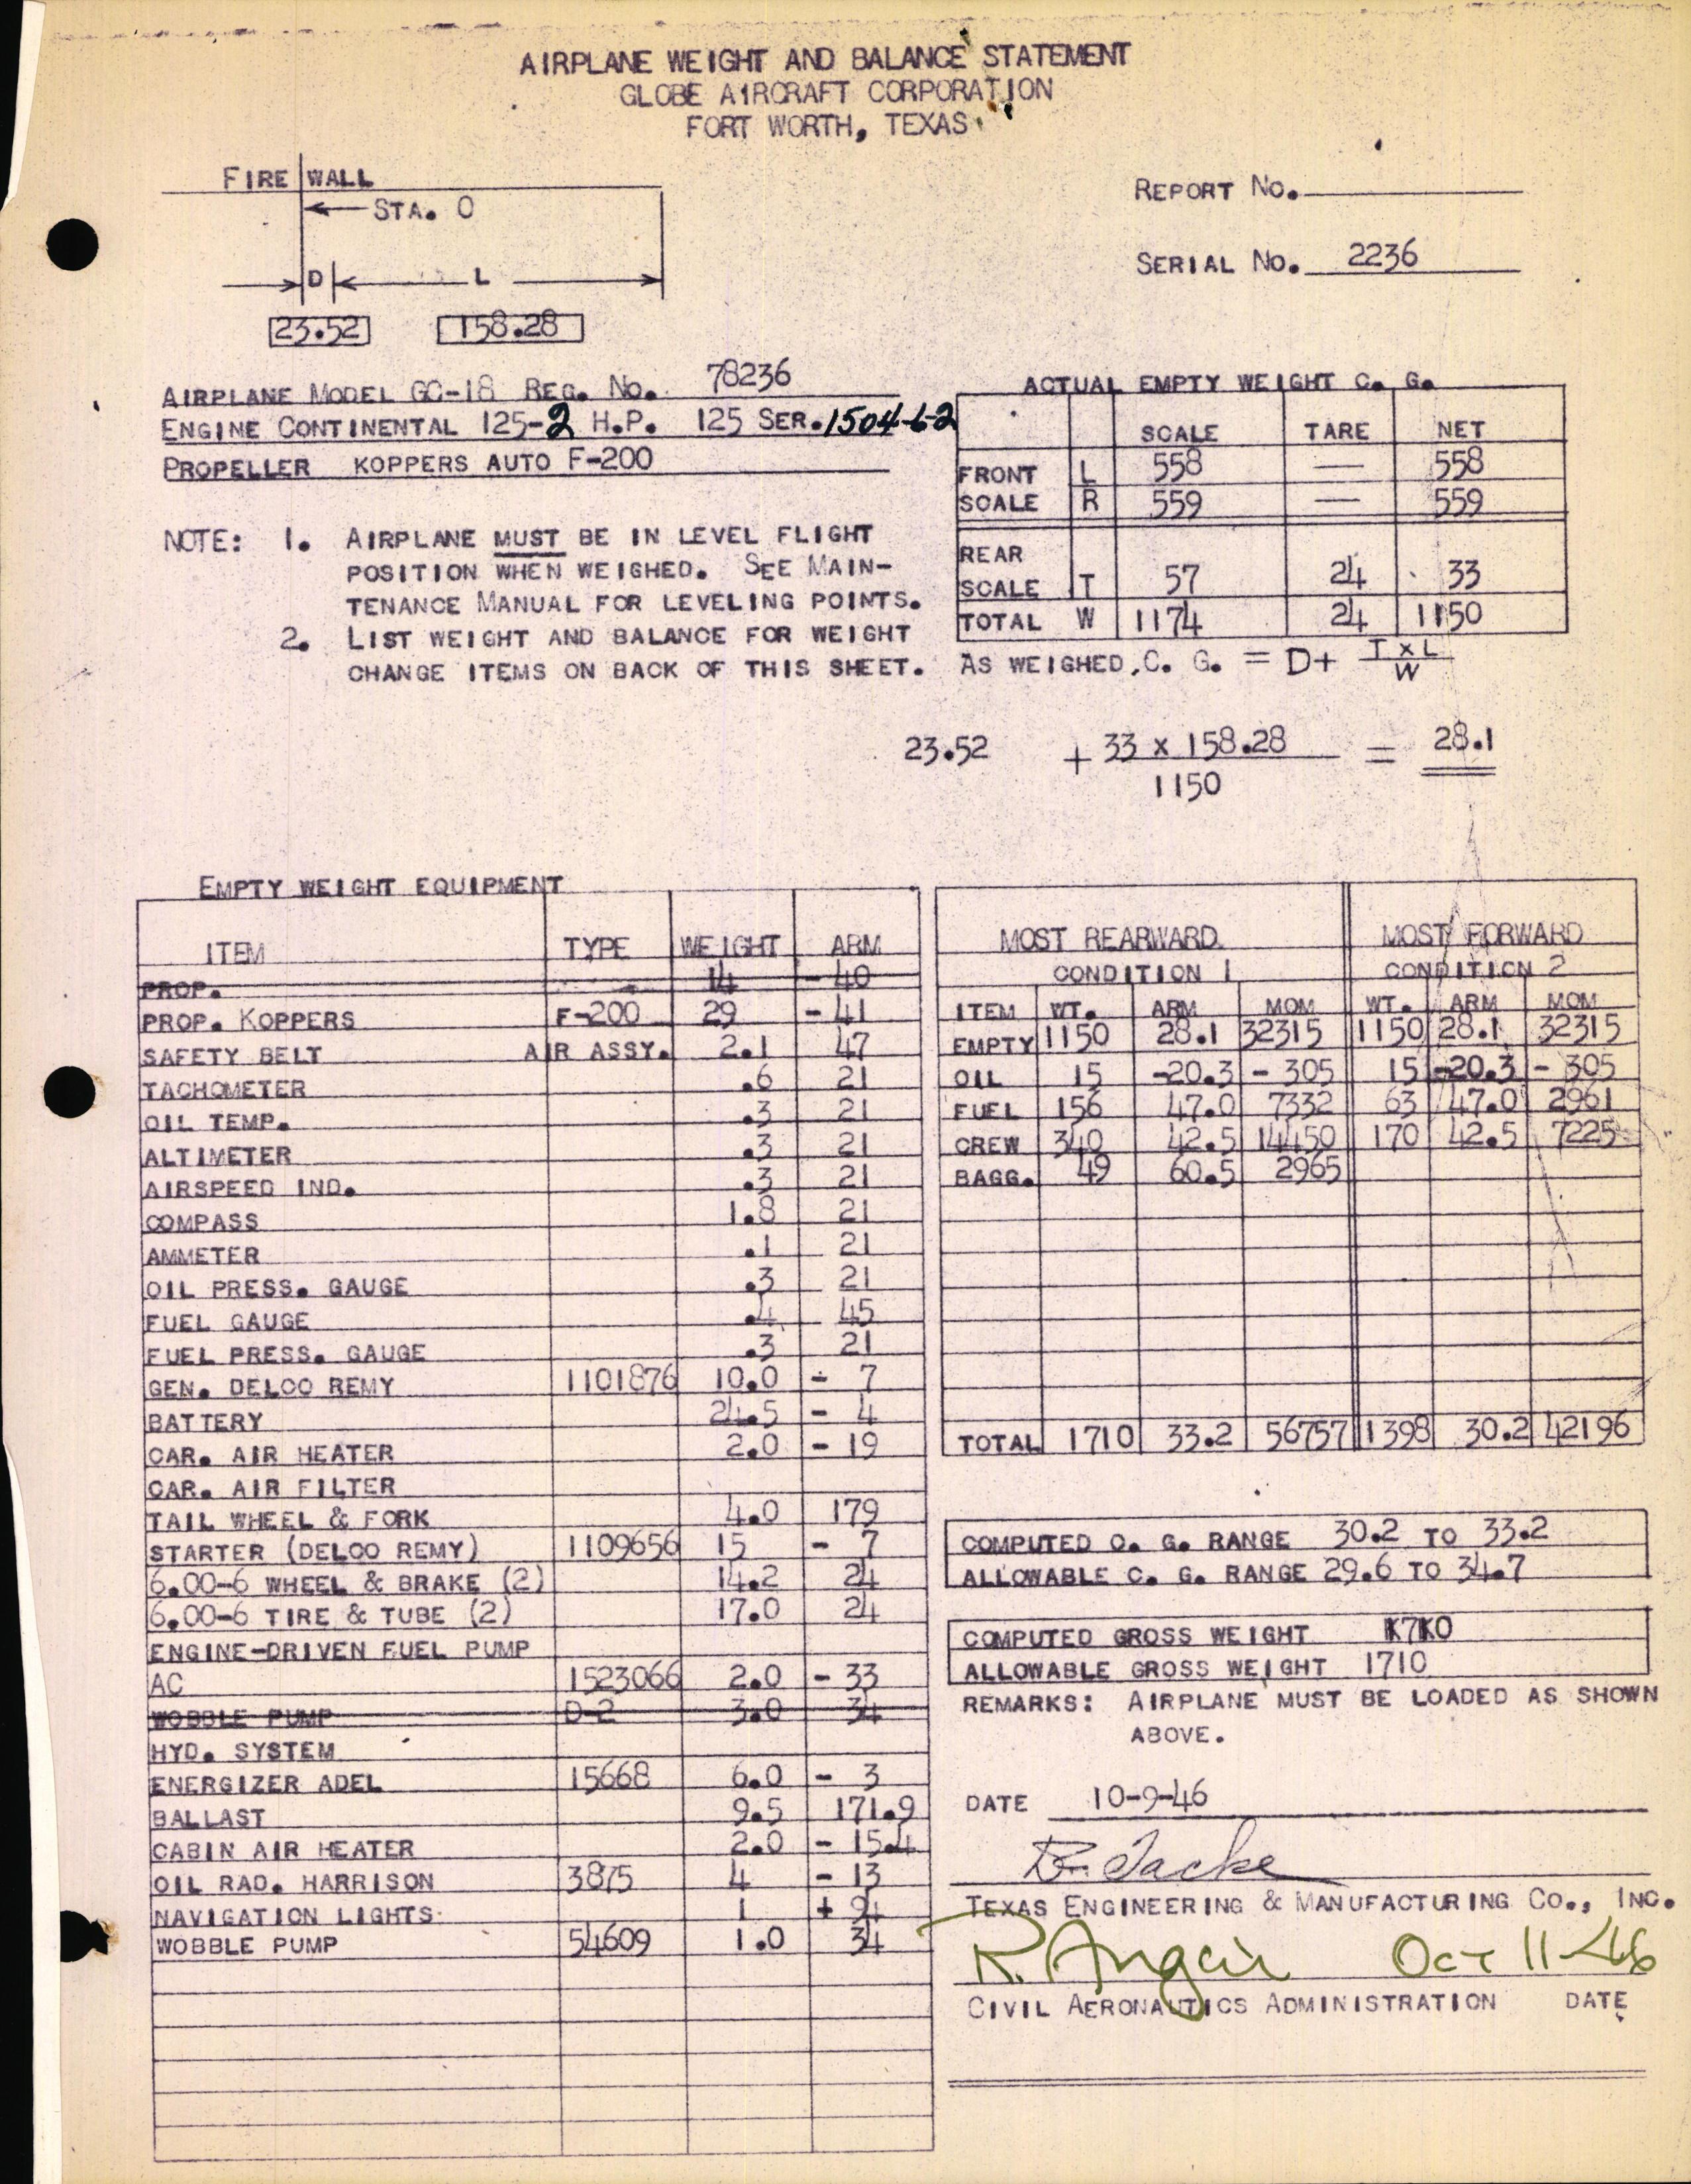 AIRPLANE WEIGHT AND BALANCE STATEMENT
GLOBE AIRCRAFT CORPORATION
FORT WORTH, TEXAS
FIRE WALL
STA. 0
D L
23.52 158.28
REPORT NO.
SERIAL NO. 2236
AIRPLANE MODEL GC-1B REG. NO. 78236
ENGINE CONTINENTAL 125-2 H.P. 125 SER. 1504-6-2
PROPELLER KOPPERS AUTO F-200
NOTE: 1. AIRPLANE MUST BE IN LEVEL FLIGHT
POSITION WHEN WEIGHED. SEE MAIN-
TENANCE MANUAL FOR LEVELING POINTS.
2. LIST WEIGHT AND BALANCE FOR WEIGHT
CHANGE ITEMS ON BACK OF THIS SHEET.
ACTUAL EMPTY WEIGHT C. G.
SCALE TARE NET
FRONT L 558 — 558
SCALE R 559 — 559
REAR
SCALE T 57 24 33
TOTAL W 1174 24 1150
AS WEIGHED, C. G. = D+ T x L
W
23.52 + 33 x 158.28 = 28.1
1150
EMPTY WEIGHT EQUIPMENT
ITEM TYPE WEIGHT ARM
PROP. 14 - 40
PROP. KOPPERS F-200 29 - 41
SAFETY BELT AIR ASSY. 2.1 47
TACHOMETER .6 21
OIL TEMP. .3 21
ALTIMETER .3 21
AIRSPEED IND. .3 21
COMPASS 1.8 21
AMMETER .1 21
OIL PRESS. GAUGE .3 21
FUEL GAUGE .4 45
FUEL PRESS. GAUGE .3 21
GEN. DELCO REMY 1101876 10.0 - 7
BATTERY 24.5 - 4
CAR. AIR HEATER 2.0 - 19
CAR. AIR FILTER
TAIL WHEEL & FORK 4.0 179
STARTER (DELCO REMY) 1109656 15 - 7
6.00-6 WHEEL & BRAKE (2) 14.2 24
6.00-6 TIRE & TUBE (2) 17.0 24
ENGINE-DRIVEN FUEL PUMP
AC 1523066 2.0 - 33
WOBBLE PUMP D-2 3.0 34
HYD. SYSTEM
ENERGIZER ADEL 15668 6.0 - 3
BALLAST 9.5 171.9
CABIN AIR HEATER 2.0 - 15.4
OIL RAD. HARRISON 3875 4 - 13
NAVIGATION LIGHTS 1 + 94
WOBBLE PUMP 54609 1.0 34
MOST REARWARD MOST FORWARD
CONDITION 1 CONDITION 2
ITEM WT. ARM MOM WT. ARM MOM
EMPTY 1150 28.1 32315 1150 28.1 32315
OIL 15 -20.3 - 305 15 -20.3 - 305
FUEL 156 47.0 7332 63 47.0 2961
CREW 340 42.5 14450 170 42.5 7225
BAGG. 49 60.5 2965
TOTAL 1710 33.2 56757 1398 30.2 42196
COMPUTED C. G. RANGE 30.2 TO 33.2
ALLOWABLE C. G. RANGE 29.6 TO 34.7
COMPUTED GROSS WEIGHT
ALLOWABLE GROSS WEIGHT 1710
REMARKS: AIRPLANE MUST BE LOADED AS SHOWN
ABOVE.
DATE 10-9-46
TEXAS ENGINEERING & MANUFACTURING CO., INC.
Oct 11-46
CIVIL AERONAUTICS ADMINISTRATION DATE